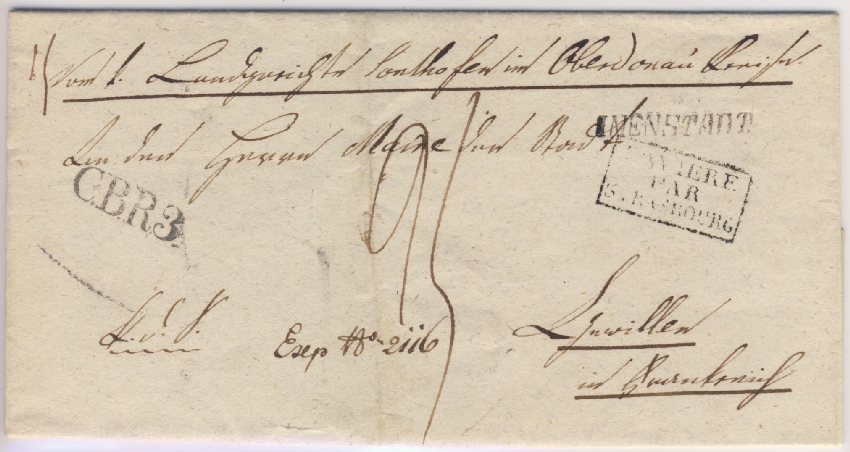 Vom k. Landgerichte Sonthofen im Oberdonau Kreise.
An den Herrn Maire der Stadt
IMENSTADT
BAVIERE
PAR
STRASBOURG
C.B.R.3.
Exp No. 2116
in Frankreich